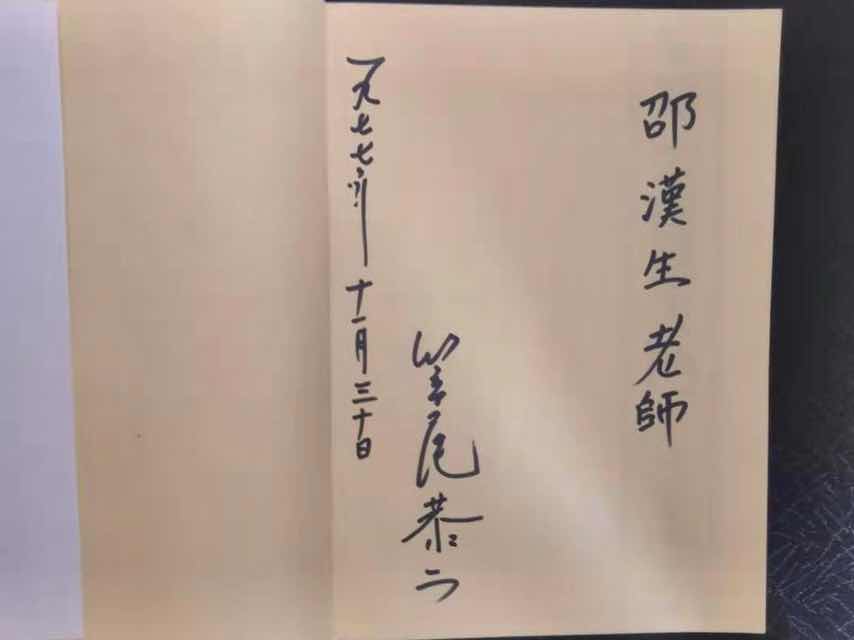 邵漢生老師
笠尾恭二
一九七七年十一月三十日